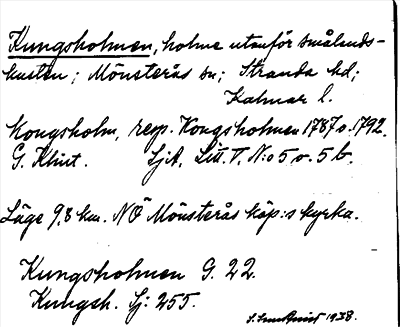 Kungsholmen, holme utanför Smålands-
kusten; Mönsterås sn; Stranda hd;
Kalmar l.
Kongsholm, resp. Kongsholmen 1787 o. 1792.
G. Klint. Sjk. Litt. T, N:o 5 o. 5 b.
Läge 9,8 km. NÖ Mönsterås köp:s kyrka.
Kungsholmen G. 22.
Kungsh. Sj: 255.
1938.